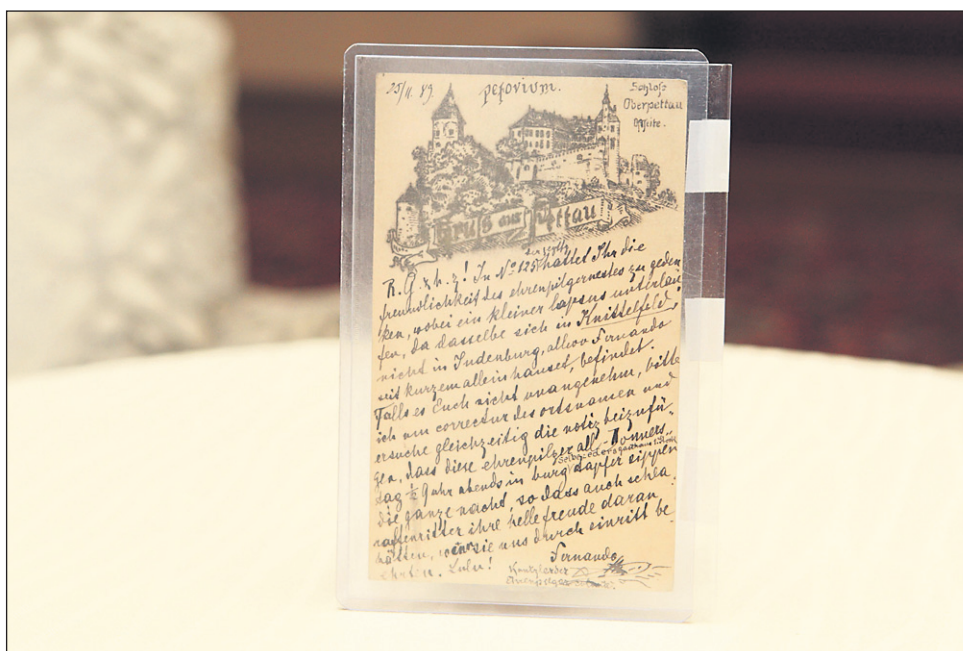 15/11. 89 pefovium. Schloß
Oberpettau
Gruß aus Pettau
R. G. & h. z! In No 125 hattet Ihr die
freundlichkeit des ehrenpilgernestes zu geden
ken, wobei ein kleiner lapsus unterlau
fen, da dasselbe sich in Knittelfeld,
nicht in Judenburg, allwo Fernando
seit kurzem allein hauset, befindet.
Falls es Euch nicht unangenehm, bitte
ich um correctur des ortsnamen und
ersuche gleichzeitig die notiz beizufü-
gen, dass diese ehrenpilger all- Donners
tag ½ 9 uhr abends in burg tapfer sippen
die ganze nacht, so dass auch schla
raffenritter ihre helle freude daran
hätten, wenn sie uns durch einritt be
Lulu!
Fernando
Kantzler der